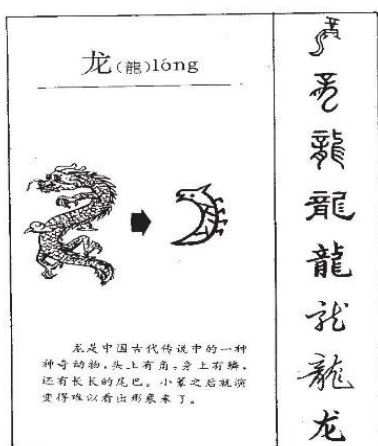 龙(龍)lóng
龙是中国古代传说中的一种
神奇动物,头上有角,身上有鳞,
还有长长的尾巴。小篆之后就演
变得难以看出形象来了。
龍
龍
龍
龍
龙